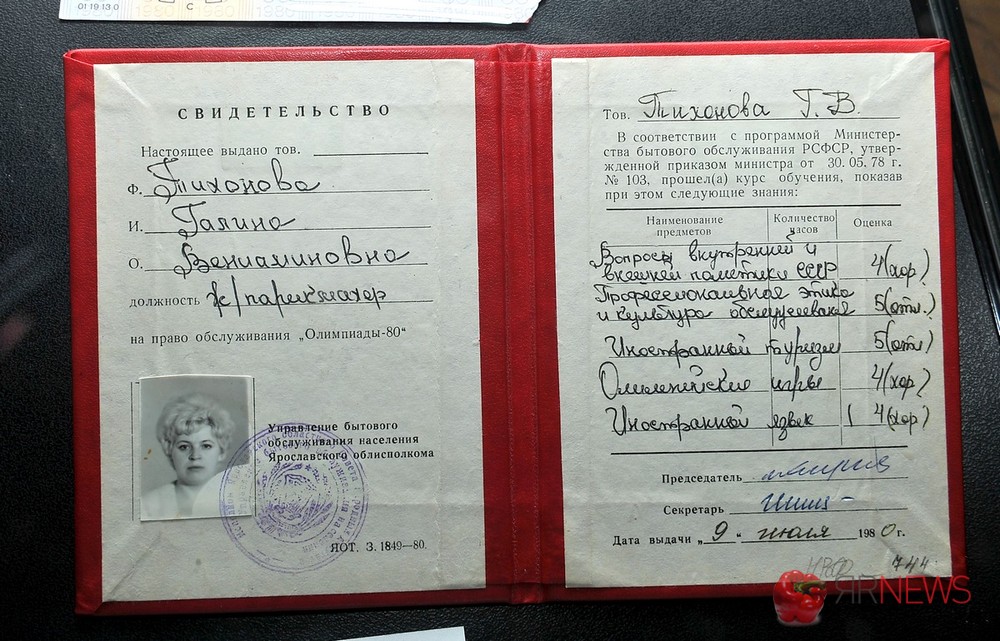 01 19 13 0
С
СВИДЕТЕЛЬСТВО
Настоящее выдано тов.
Ф. Тихонова
И. Галина
О. Вениаминовна
должность ж/парикмахер
на право обслуживания „Олимпиады-80“
Управление бытового
обслуживания населения
Ярославского облисполкома
ЯОТ. З. 1849—80.
Тов. Тихонова Г. В.
В соответствии с программой Министер-
ства бытового обслуживания РСФСР, утвер-
жденной приказом министра от 30. 05. 78 г.
№ 103, прошел(а) курс обучения, показав
при этом следующие знания:
Наименование предметов Количество часов Оценка
Вопросы внутренней и
внешней политики СССР 4(хор)
Профессиональная этика
и культура обслуживания 5(отл.)
Иностранный туризм 5(отл)
Олимпийские игры 4(хор)
Иностранный язык 4(хор)
Председатель
Секретарь
Дата выдачи „9“ июля 1980 г.
744
ЯRNEWS